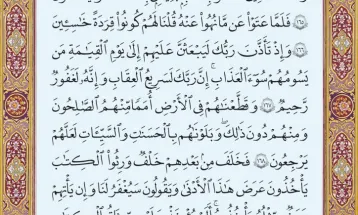 فَلَمَّا عَتَوْا۟ عَن مَّا نُهُوا۟ عَنْهُ قُلْنَا لَهُمْ كُونُوا۟ قِرَدَةً خَٰسِـِٔينَ
١٦٦ وَإِذْ تَأَذَّنَ رَبُّكَ لَيَبْعَثَنَّ عَلَيْهِمْ إِلَىٰ يَوْمِ ٱلْقِيَٰمَةِ مَن
يَسُومُهُمْ سُوٓءَ ٱلْعَذَابِ إِنَّ رَبَّكَ لَسَرِيعُ ٱلْعِقَابِ وَإِنَّهُۥ لَغَفُورٌ
رَّحِيمٌ ١٦٧ وَقَطَّعْنَٰهُمْ فِى ٱلْأَرْضِ أُمَمًا مِّنْهُمُ ٱلصَّٰلِحُونَ
وَمِنْهُمْ دُونَ ذَٰلِكَ وَبَلَوْنَٰهُم بِٱلْحَسَنَٰتِ وَٱلسَّيِّـَٔاتِ لَعَلَّهُمْ
يَرْجِعُونَ ١٦٨ فَخَلَفَ مِنۢ بَعْدِهِمْ خَلْفٌ وَرِثُوا۟ ٱلْكِتَٰبَ
يَأْخُذُونَ عَرَضَ هَٰذَا ٱلْأَدْنَىٰ وَيَقُولُونَ سَيُغْفَرُ لَنَا وَإِن يَأْتِهِمْ